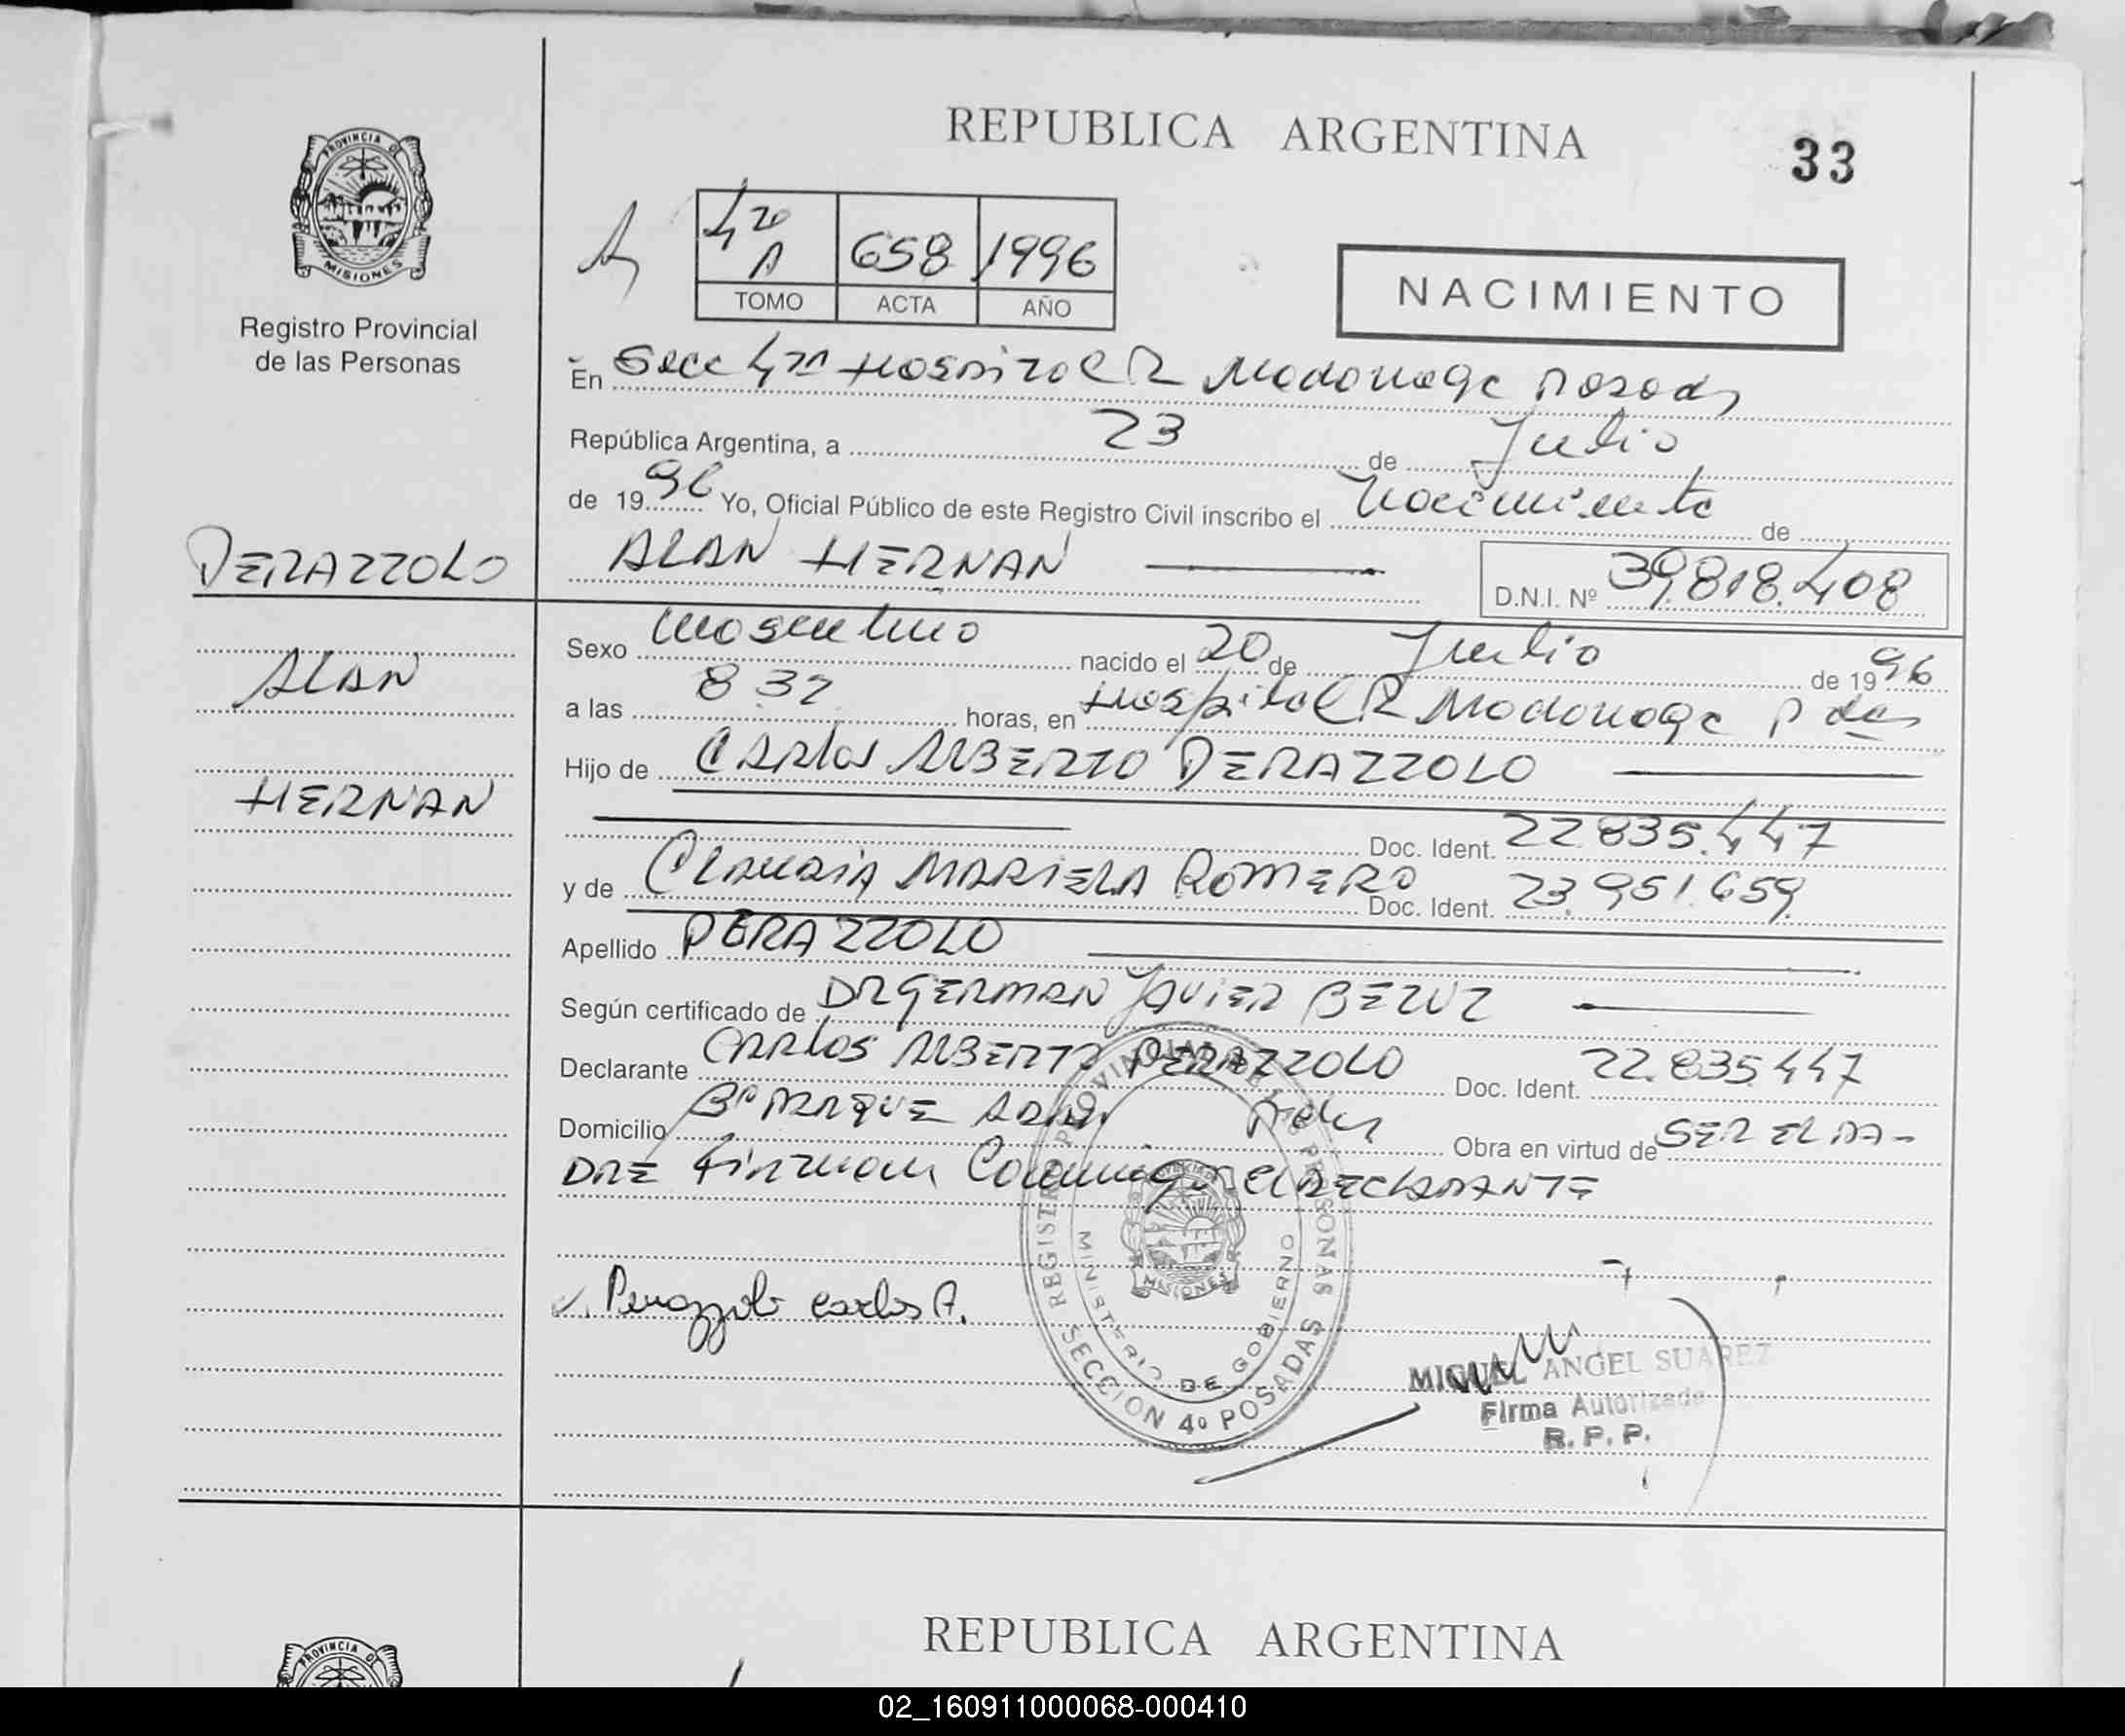 REPUBLICA ARGENTINA
33
PROVINCIA DE
MISIONES
Registro Provincial
de las Personas
4to A 658 1996
TOMO ACTA AÑO
NACIMIENTO
En Secc 4ta Hospital R Madariaga Posadas
República Argentina, a 23 de Julio
de 1996 Yo, Oficial Público de este Registro Civil inscribo el Nacimiento de
PERAZZOLO
ALAN HERNAN
D.N.I. Nº 39.818.408
ALAN
HERNAN
Sexo masculino nacido el 20 de Julio de 1996
a las 8 32 horas, en Hospital R Madariaga Pdas
Hijo de CARlos ALBERTO PERAZZOLO
Doc. Ident. 22.835.447
y de CLAUDIA MARIELA ROMERO Doc. Ident. 23.951.659
Apellido PERAZZOLO
Según certificado de DR GERMAN JAVIER
Declarante CARLOS ALBERTO PERAZZOLO Doc. Ident. 22.835.447
Domicilio Bº PARQUE Pdas Obra en virtud de SER EL PA-
DRE Firman Conmigo el DECLARANTE
REGISTRO PROVINCIAL DE LAS PERSONAS
MINISTERIO DE GOBIERNO
MISIONES
SECCION 4º POSADAS
Perazzolo Carlos A.
MIGUEL ANGEL SUAREZ
Firma Autorizada
R. P. P.
REPUBLICA ARGENTINA
PROVINCIA DE
02_160911000068-000410